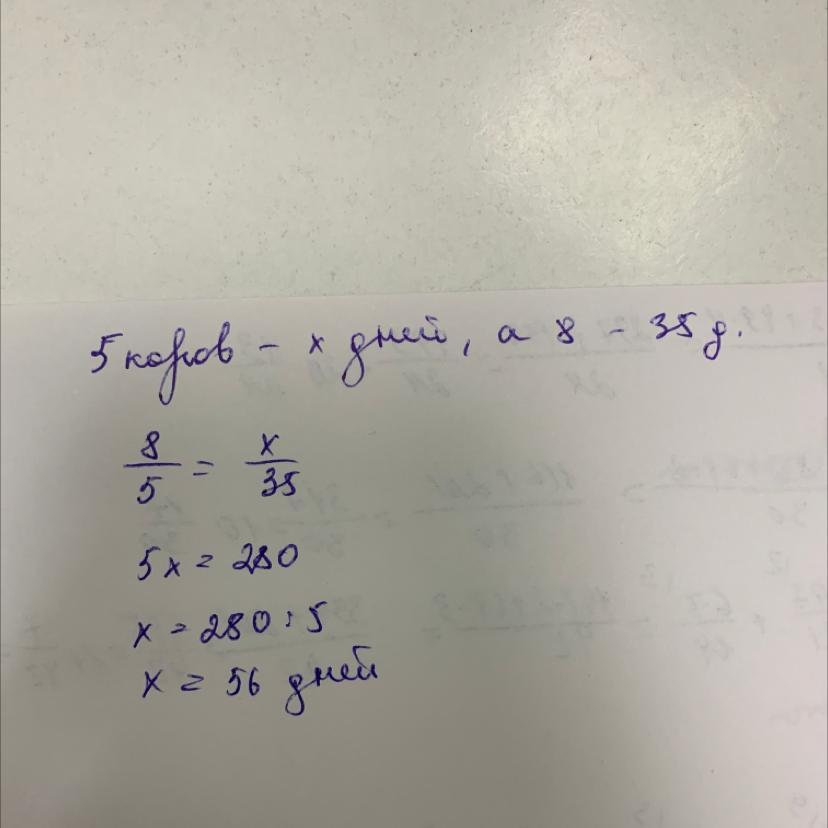 5 коров - x дней, а 8 - 35 д.
8/5 = x/35
5x = 280
x = 280 : 5
x = 56 дней